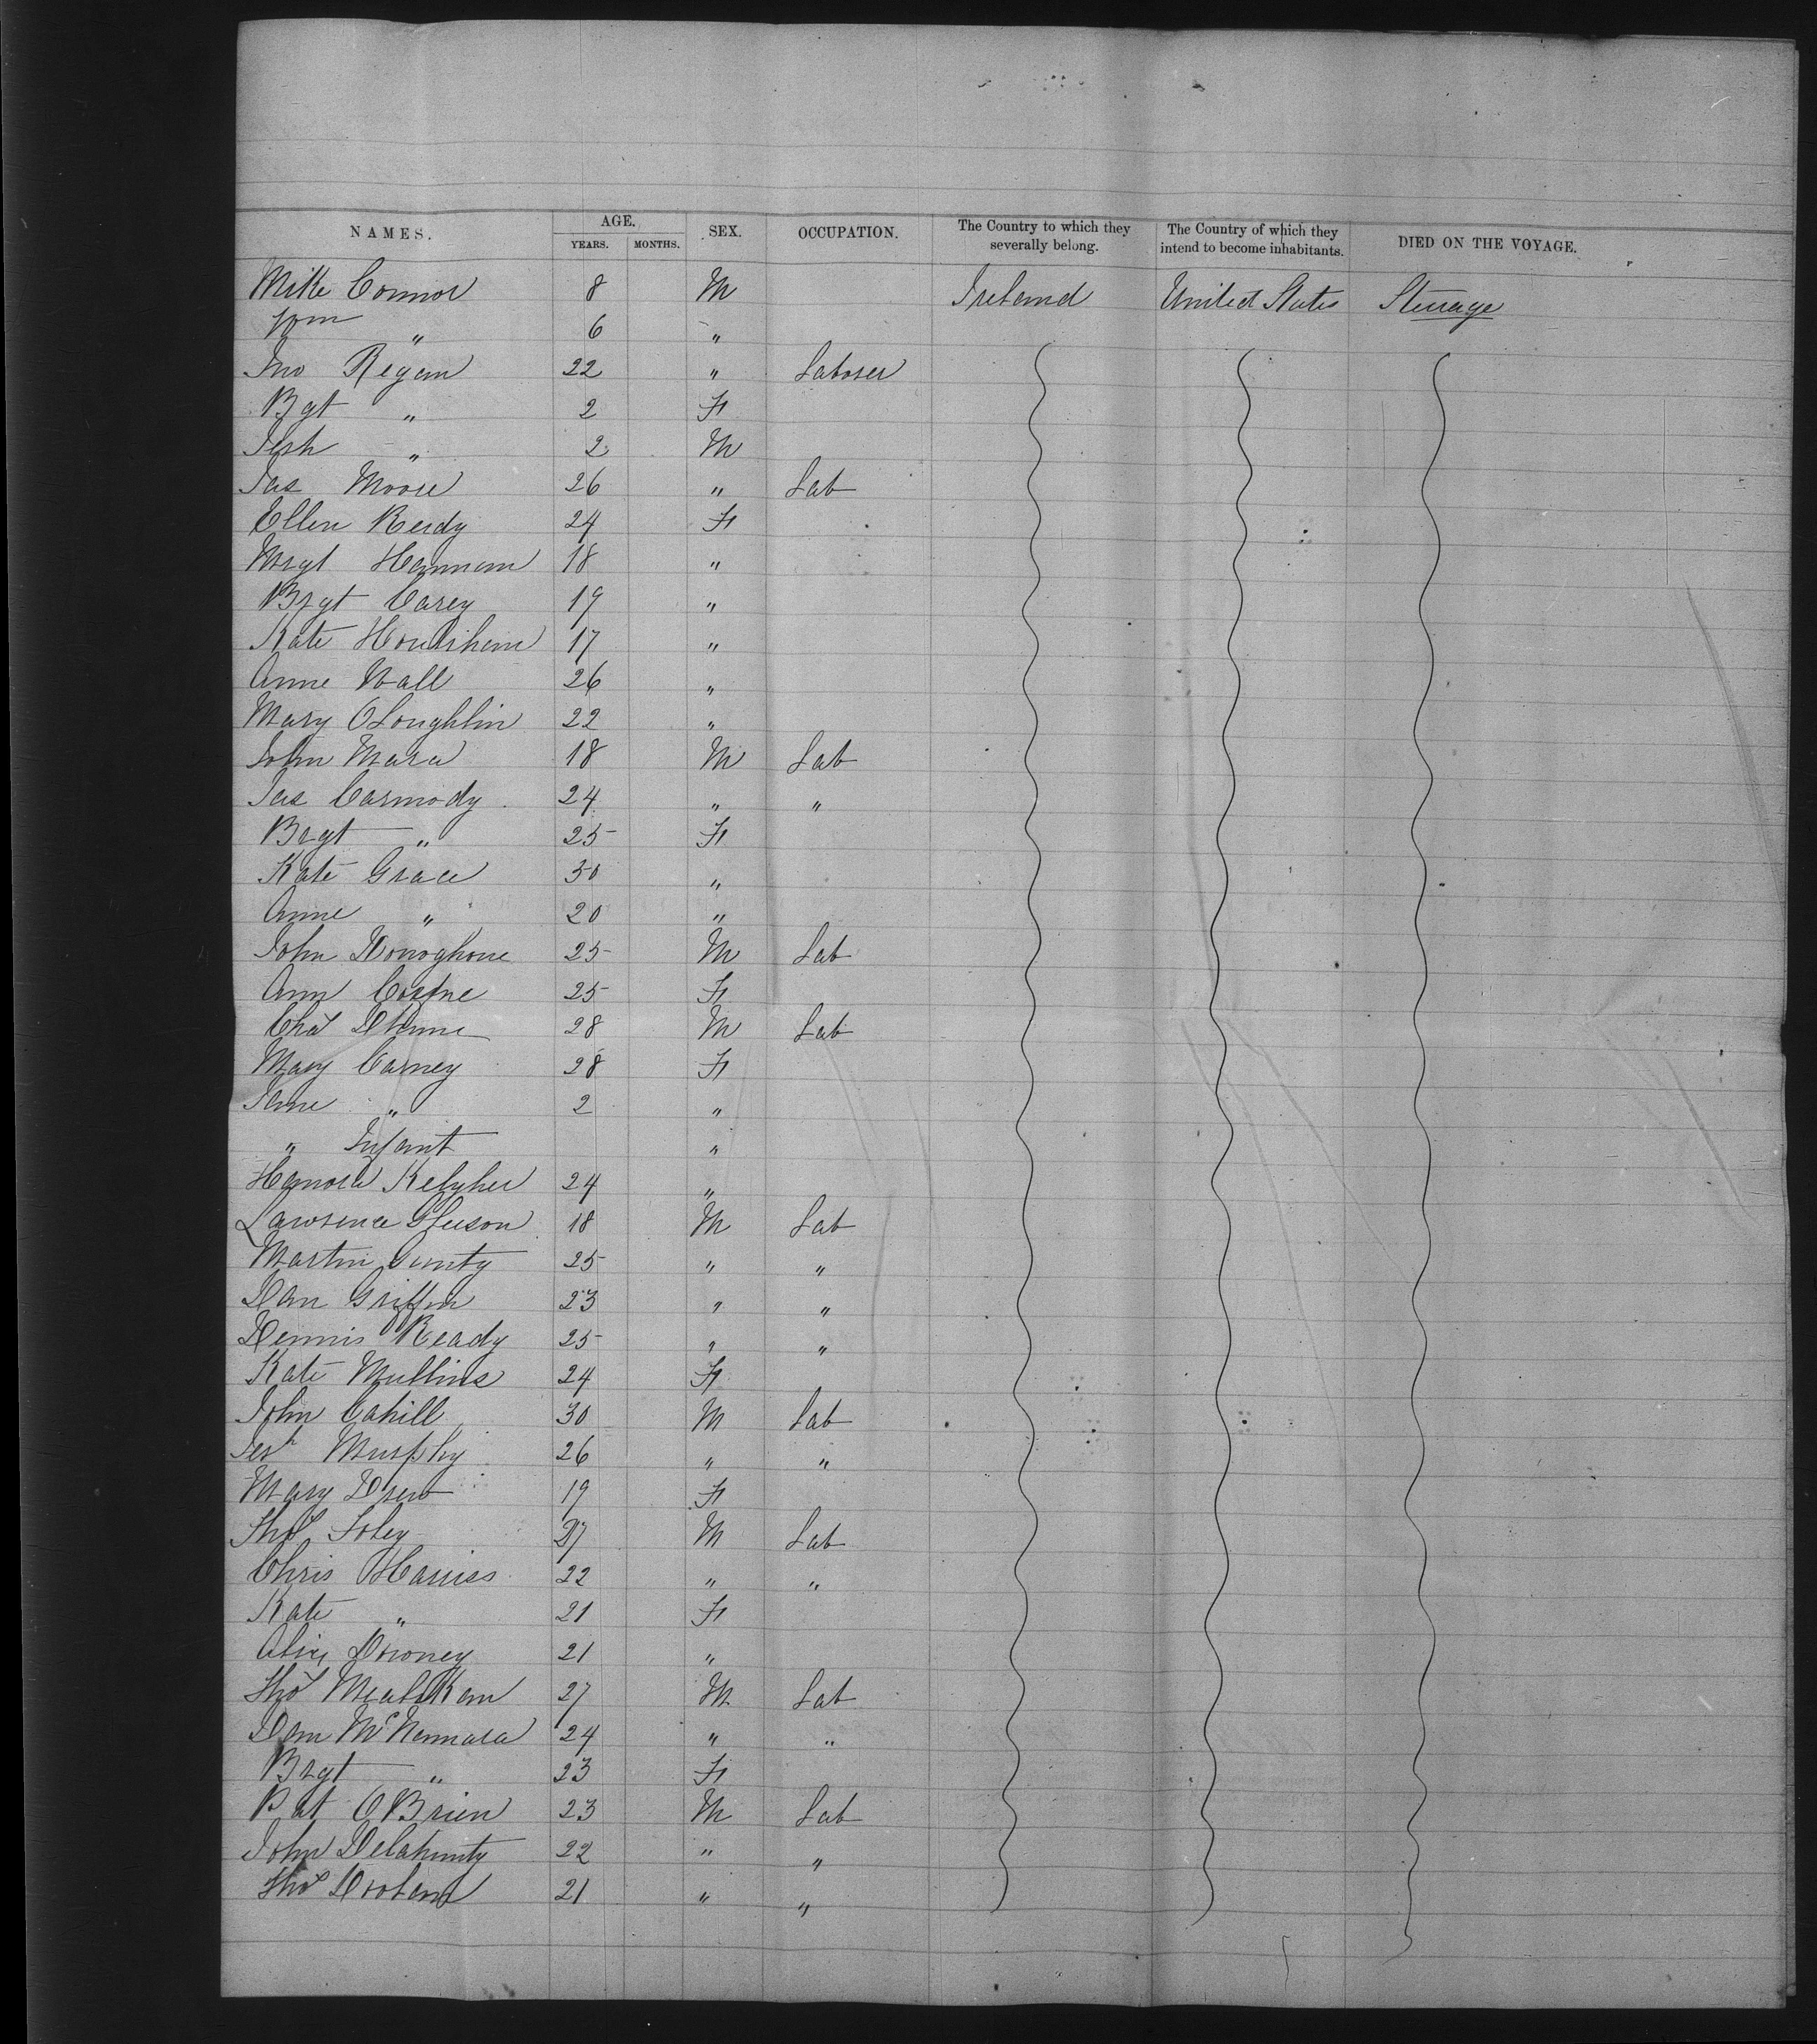 NAMES. AGE. YEARS. MONTHS. SEX. OCCUPATION. The Country to which they severally belong. The Country of which they intend to become inhabitants. DIED ON THE VOYAGE.
Mike Connor 8 M Ireland United States Steerage
Wm " 6 "
Jno Regan 22 " Laborer
Bgt " 2 F
" 2 M
Jas Moore 26 " Lab
Ellen Reidy 24 F
Mrgt Hannan 18 "
Brgt Carey 19 "
Kate Hourihane 17 "
Anne Wall 26 "
Mary OLoughlin 22 "
John Mara 18 M Lab
Jas Carmody 24 " "
Brgt " 25 F
Kate Grace 30 "
Anne " 20 "
John Donoghoue 25 M Lab
Ann 25 F
Chas Dunne 28 M Lab
Mary Carney 28 F
Jane " 2 "
" Infant "
Hanora Kelyher 24 "
Lawrence Gleeson 18 M Lab
Martin 25 " "
Dan Griffin 23 " "
Dennis Ready 25 " "
Kate Mullins 24 F
John Cahill 30 M Lab
Murphy 26 " "
Mary Drew 19 F
Thos Foley 27 M Lab
Chris Harriss 22 " "
Kate " 21 F
Alice Downey 21 "
Thos 27 M Lab
Dan McNamara 24 " "
Brgt " 23 F
Pat OBrien 23 M Lab
John Delahunty 22 " "
Thos Drohan 21 " "